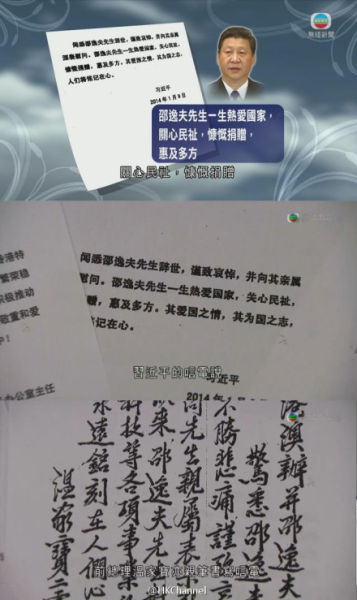 無綫新聞
闻悉邵逸夫先生辞世,谨致哀悼,并向其亲属
深表慰问。邵逸夫先生一生热爱国家,关心民祉,
慷慨捐赠,惠及多方。其爱国之情,其为国之志,
人们将铭记在心。
习近平
2014年1月9日
邵逸夫先生一生熱愛國家,
關心民祉,慷慨捐贈,
惠及多方
關心民祉,慷慨捐贈
闻悉邵逸夫先生辞世,谨致哀悼,并向其亲属
慰问。邵逸夫先生一生热爱国家,关心民祉,
赠,惠及多方。其爱国之情,其为国之志,
记在心。
习近平
2014年
香港特
繁荣稳
积极推动
敬重和爱
办公室主任
習近平的唁電說
港澳辦并邵逸夫
驚悉邵逸
不勝悲痛謹致
向先生親屬表
以來邵逸夫先
科技等各项事業
永遠銘刻在人們心
溫家寶
前總理溫家寶亦親筆書寫唁電
@HKChannel